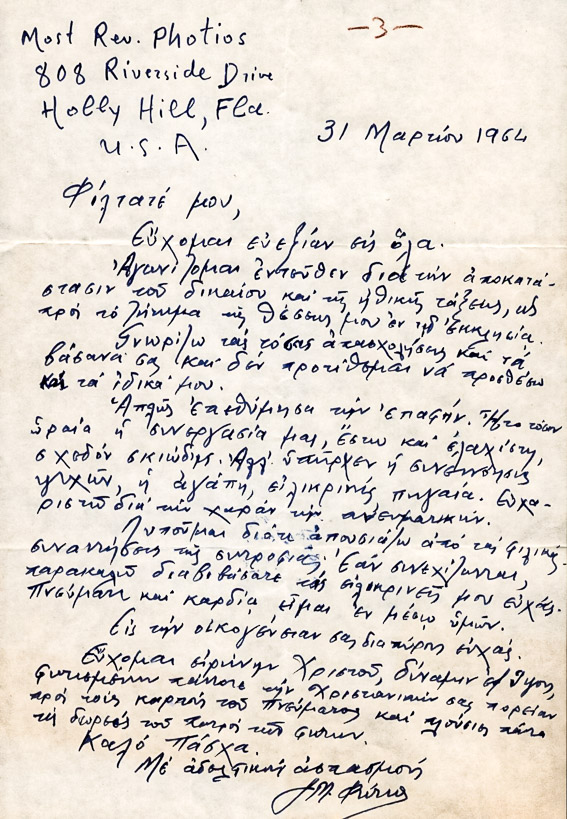 Most Rev. Photios
— 3 —
808 Riverside Drive
Holly Hill, Fla.
U. S. A.
31 Μαρτίου 1964
Φίλτατέ μου,
Εὔχομαι εὐεξίαν εἰς ὅλα.
Ἀγωνίζομαι ἐντεῦθεν διά τήν ἀποκατά-
στασιν τοῦ δικαίου καί τῆς ἠθικῆς τάξεως, ὡς
πρός τό ζήτημα τῆς θέσεώς μου ἐν τῇ Ἐκκλησίᾳ.
Γνωρίζω τάς τόσας ἀπασχολήσεις καί τά
βάσανά σας καί δέν προτίθεμαι νά προσθέσω
καί τά ἰδικά μου.
Ἁπλῶς ἐπεθύμησα τήν ἐπαφήν. Ἦτο τόσον
ὡραία ἡ συνεργασία μας, ἔστω καί ἐλαχίστη,
σχεδόν σκιώδης. Ἀλλ' ὑπῆρχεν ἡ συνεννόησις
ψυχῶν, ἡ ἀγάπη, εἰλικρινής πηγαία. Εὐχα-
ριστῶ διά τήν χαράν τήν πνευματικήν.
Λυποῦμαι διότι ἀπουσιάζω ἀπό τάς φιλικάς
συναντήσεις τῆς συντροφιᾶς. Ἐάν συνεχίζωνται,
παρακαλῶ διαβιβάσατε τάς εἰλικρινεῖς μου εὐχάς.
Πνεύματι καί καρδίᾳ εἶμαι ἐν μέσῳ ὑμῶν.
Εἰς τήν οἰκογένειαν σας διαπύρους εὐχάς.
Εὔχομαι εἰρήνην Χριστοῦ, δύναμιν ἐξ Ὕψους,
φωτισμένην πάντοτε τήν Χριστιανικήν σας πορείαν
πρός τούς καρπούς τοῦ Πνεύματος καί πλούσιες πάντα
τίς δωρεές τοῦ Πατρός τῶν Φώτων.
Καλό Πάσχα.
Μέ ἀδελφικούς ἀσπασμούς